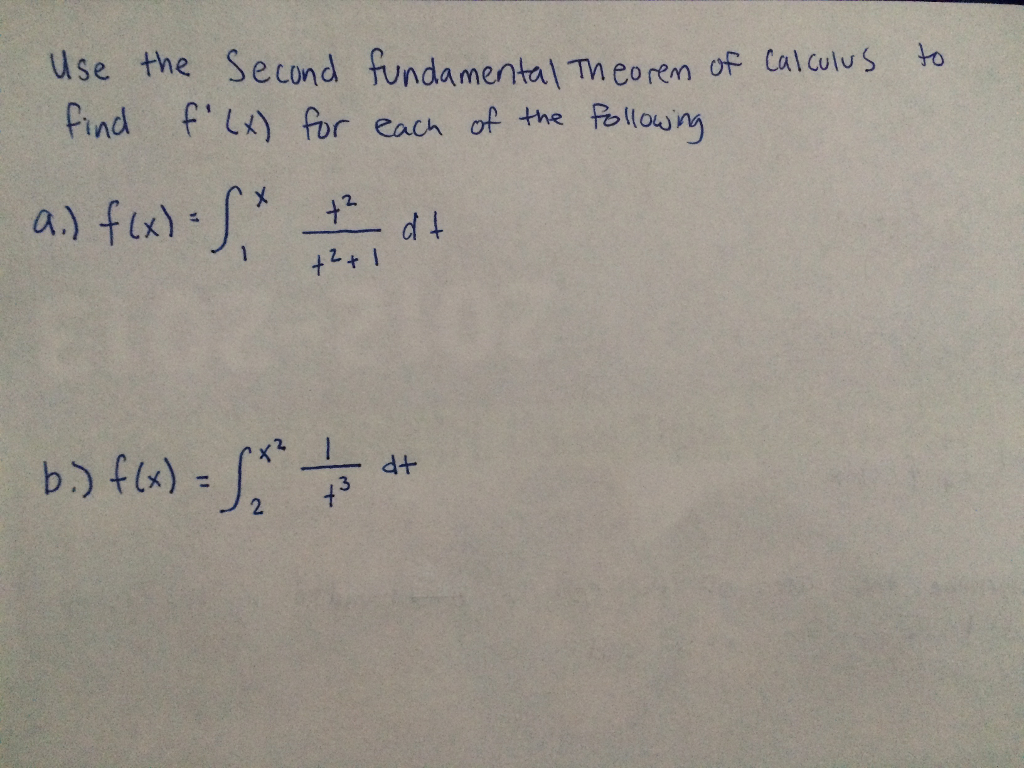 Use the Second fundamental Theorem of Calculus to
find f'(x) for each of the following
a.) f(x) = ∫₁ˣ t²/(t²+1) dt
b.) f(x) = ∫₂^(x²) 1/t³ dt